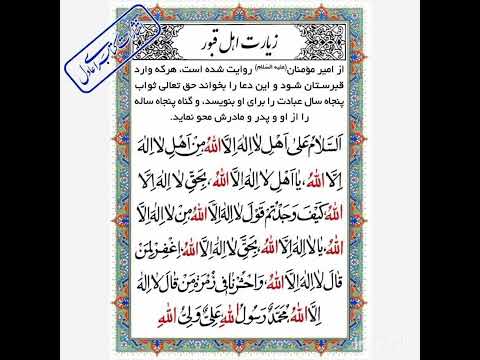 زیارت اهل قبور
از امیر مؤمنان(علیه السّلام) روایت شده است، هرکه وارد
قبرستان شود و این دعا را بخواند حق تعالی ثواب
پنجاه سال عبادت را برای او بنویسد، و گناه پنجاه ساله
را از او و پدر و مادرش محو نماید.
اَلسَّلامُ عَلیٰ اَهْلِ لا اِلهَ اِلَّا اللهُ مِنْ اَهْلِ لا اِلهَ
اِلَّا اللهُ، یا اَهْلَ لا اِلهَ اِلَّا اللهُ، بِحَقِّ لا اِلهَ اِلَّا
اللهُ کَیْفَ وَجَدْتُمْ قَوْلَ لا اِلهَ اِلَّا اللهُ مِنْ لا اِلهَ اِلَّا
اللهُ، یا لا اِلهَ اِلَّا اللهُ، بِحَقِّ لا اِلهَ اِلَّا اللهُ، اِغْفِرْ لِمَنْ
قالَ لا اِلهَ اِلَّا اللهُ، وَاحْشُرْنا فی زُمْرَةِ مَنْ قالَ لا اِلهَ
اِلَّا اللهُ مُحَمَّدٌ رَسُولُ اللهِ عَلِیٌّ وَلِیُّ اللهِ